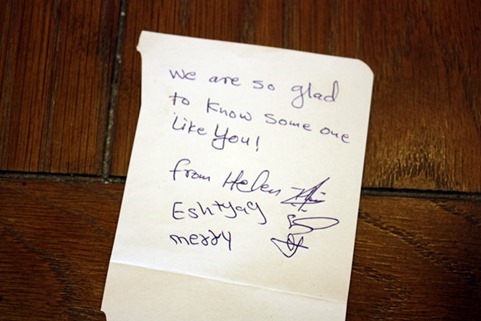 We are so glad
to know some one
like you!
from Helen
Eshtyag
merry